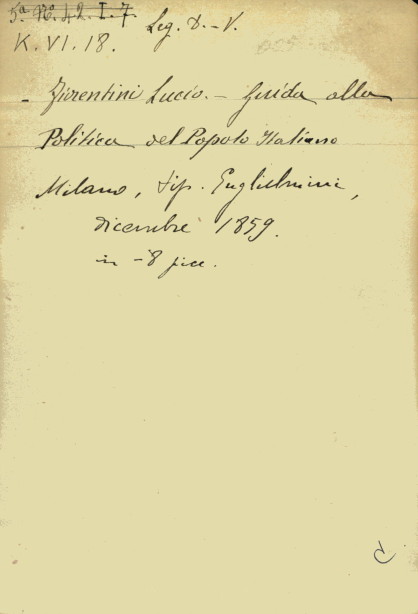 5ª Nº. 42. I. 7.
Leg. D.-V.
K. VI. 18.
- Fiorentini Lucio. - Guida alla
Politica del Popolo Italiano
Milano, tip. Guglielmini,
dicembre 1859.
in -8 picc.